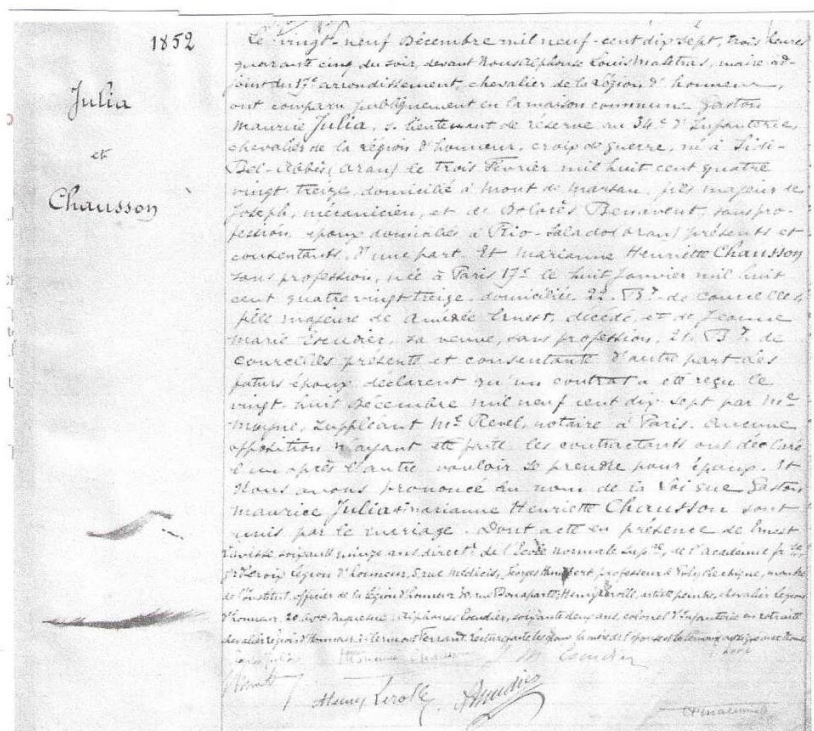 1852
Julia
et
Chausson
Le vingt-neuf Décembre mil neuf-cent dix sept, trois heures
quarante cinq du soir, devant Nous Alphonse Louis Malétras, maire ad-
joint du 17e arrondissement, chevalier de la Légion d'honneur,
ont comparu publiquement en la maison commune Gaston
Maurice Julia, s. lieutenant de réserve au 34e d'Infanterie,
chevalier de la Légion d'honneur, croix de guerre, né à Sidi-
Bel-Abbès (Oran) le trois Février mil huit cent quatre
vingt-treize, domicilié à Mont de Marsan, fils majeur de
Joseph, mécanicien, et de Dolorès Benavent, sans pro-
fession, époux domiciliés à Rio-Salado (Oran) présents et
consentants, d'une part. Et Marianne Henriette Chausson
sans profession, née à Paris 17e le huit Janvier mil huit
cent quatre vingt treize, domiciliée 22 Bd de Courcelles,
fille majeure de Amédée Ernest, décédé, et de Jeanne
Marie Escudier, sa veuve, sans profession, 22 Bd de
Courcelles présente et consentante d'autre part. Les
futurs époux déclarent qu'un contrat a été reçu le
vingt-huit Décembre mil neuf cent dix-sept par Me
suppléant Me Revel, notaire à Paris. Aucune
opposition n'ayant été faite, les contractants ont déclaré
l'un après l'autre vouloir se prendre pour époux. Et
Nous avons prononcé au nom de la Loi que Gaston
Maurice Julia et Marianne Henriette Chausson sont
unis par le mariage. Dont acte en présence de Ernest
Lavisse, soixante quinze ans, direct. de l'école normale Supre, de l'académie fse
gd croix Légion d'honneur, 5 rue Médicis, Georges Humbert, professeur à Polytechnique, membre
de l'Institut, officier de la Légion d'honneur, rue Bonaparte, Henry Lerolle, artiste peintre, chevalier Légion
d'honneur, 20 ave Duquesne, Alphonse Escudier, soixante deux ans, colonel d'Infanterie en retraite
chevalier Légion d'honneur, Clermont Ferrand. Lecture faite les époux, la mère de l'épouse et les témoins ont signé avec Nous
Gaston Julia Marianne Chausson J M Escudier
Henry Lerolle AEscudier